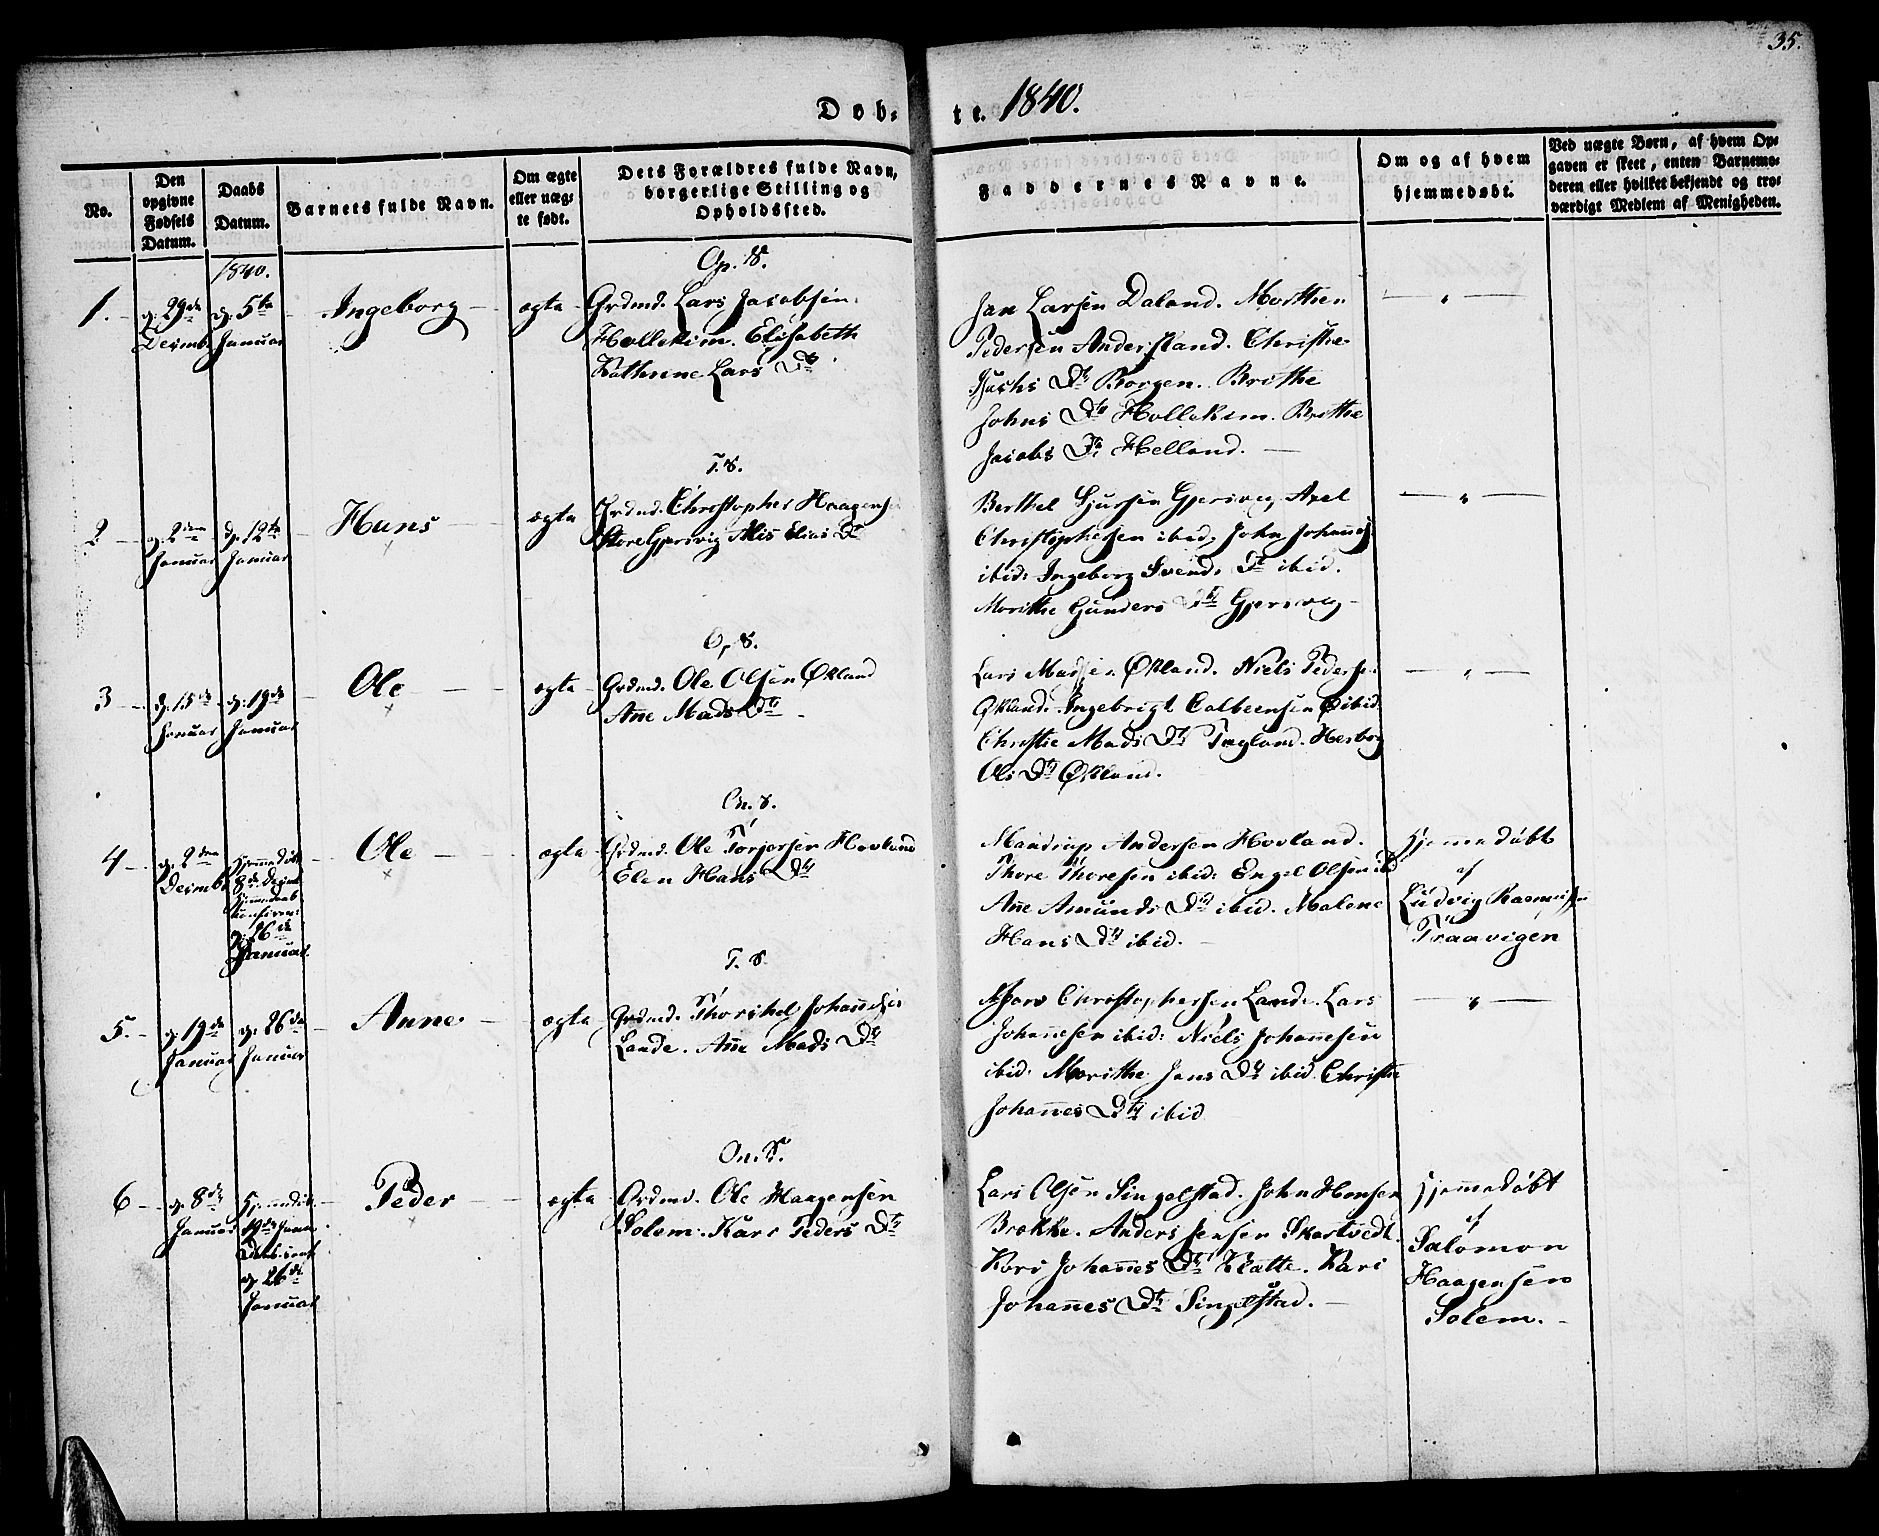 35.
Døb-
te. 1840.
No.
Den opgivne Fødsels Datum.
Daabs Datum.
Barnets fulde Navn.
Om ægte eller uægte født.
Dets Forældres fulde Navn, borgerlige Stilling og Opholdssted.
Faddernes Navne.
Om og af hvem hjemmedøbt.
Ved uægte Børn, af hvem Opgaven er skeet, enten Barnemoderen eller hvilket bekjendt og troværdigt Medlem af Menigheden.
1840.
Op. S.
1. d. 29de Decmb. d. 5te Januar Ingeborg ægte
Grdmd. Lars Jacobsen
Hollekim. Elisabeth
Kathrine Lars Dtr
Jan Larsen Daland. Morthen
Pedersen Andersland. Christie
Dtr Borgen. Brithe
Johns Dtr Hollekim. Brithe
Jacobs Dtr Helland.
T. S.
2 d. 2den Januar d. 12te Januar Hans ægte
Grdmd. Christopher Haagens
Store Gjersvig Elias Dtr
Berthel Sjursen Gjersvig, Axel
Christophersen ibid, John Johannes
ibid: Ingeborg Svends Dtr ibid.
Marithe Gunders Dtr Gjersvig
Op. S.
3 d. 15de Januar d. 19de Januar Ole ægte
Grdmd. Ole Olsen Økland
Anne Mads Dtr
Lars Madsen Økland. Niels Peders
Økland. Ingebrigt ibid
Christie Mads Dtr Tegland. Herborg
Ols Dtr Økland.
On. S.
4 d. 2den Decmb. Hjemmedøbt 8de Decmb. d. 26de Januar Ole ægte
Grdmd. Ole Torjersen Hovland
Elen Hans Dtr
Mandrup Andersen Hovland.
Thore Thoresen ibid: Engel Olsen ibid
Anne Amunds Dtr ibid. Malene
Hans Dtr ibid.
Hjemmedøbt
af
Ludvig Rasmussen
Traavigen
T. S.
5. d. 19de Januar d. 26de Januar Anne ægte
Grdmd. Thorchel Johannesen
Lande. Anne Mads Dtr
Christophersen Lande. Lars
Johannesen ibid: Niels Johannesen
ibid. Marithe Jans Dtr ibid Christie
Johannes Dtr ibid
On. S.
6 d. 8de Januar Hjemmedøbt 19de Januar d. 26de Januar Peder ægte
Grdmd. Ole Haagensen
Solem. Kari Peders Dtr
Lars Olsen Singelstad. John Hansen
Brekke. Anders Jensen Skartvedt.
Kari Johannes Dtr Klatte. Kari
Johannes Dtr Singelstad.
Hjemmedøbt
af
Salomon
Haagensen
Solem.